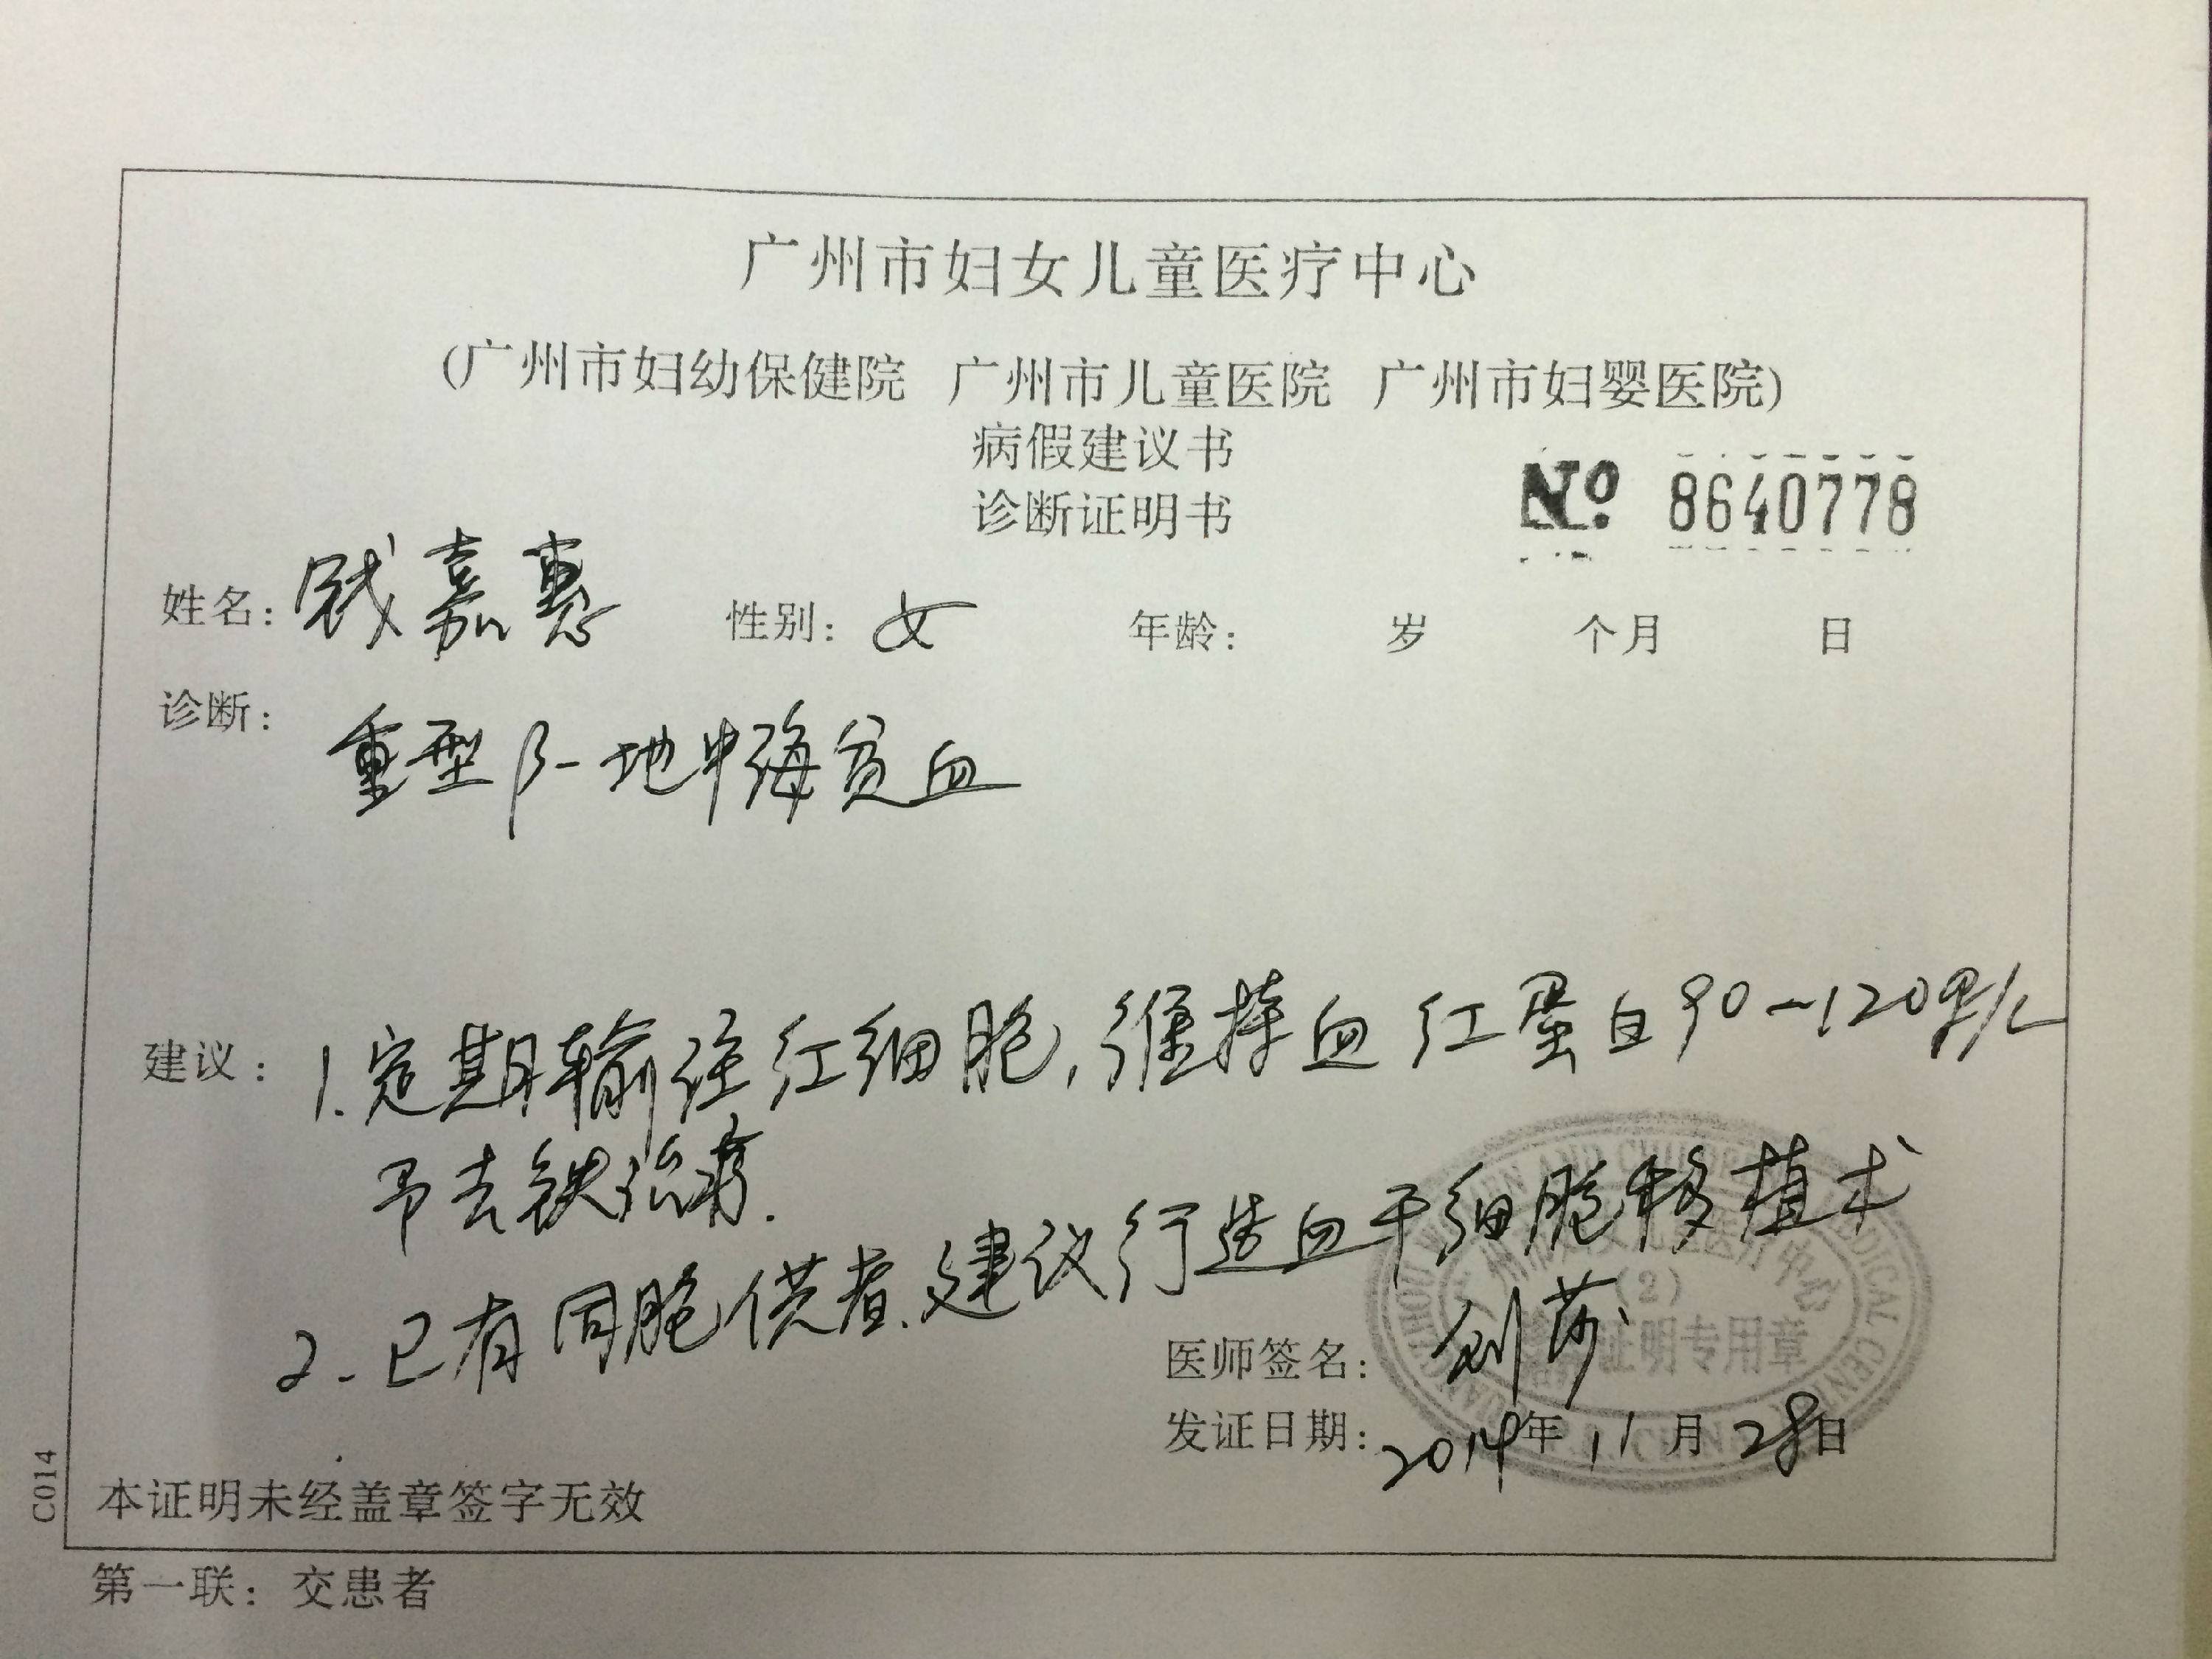 广州市妇女儿童医疗中心
(广州市妇幼保健院 广州市儿童医院 广州市妇婴医院)
病假建议书
诊断证明书
№ 8640778
姓名: 嘉惠 性别: 女 年龄: 岁 个月 日
诊断:
重型β-地中海贫血
建议: 1.定期输注红细胞,维持血红蛋白90~120g/L
予去铁治疗.
2.已有同胞供者.建议行造血干细胞移植术
医师签名: 刘莎
发证日期: 2014年11月28日
广州市妇女儿童医疗中心
(2)
证明专用章
GUANGZHOU WOMEN AND CHILDREN'S MEDICAL CENTER
本证明未经盖章签字无效
C014
第一联: 交患者